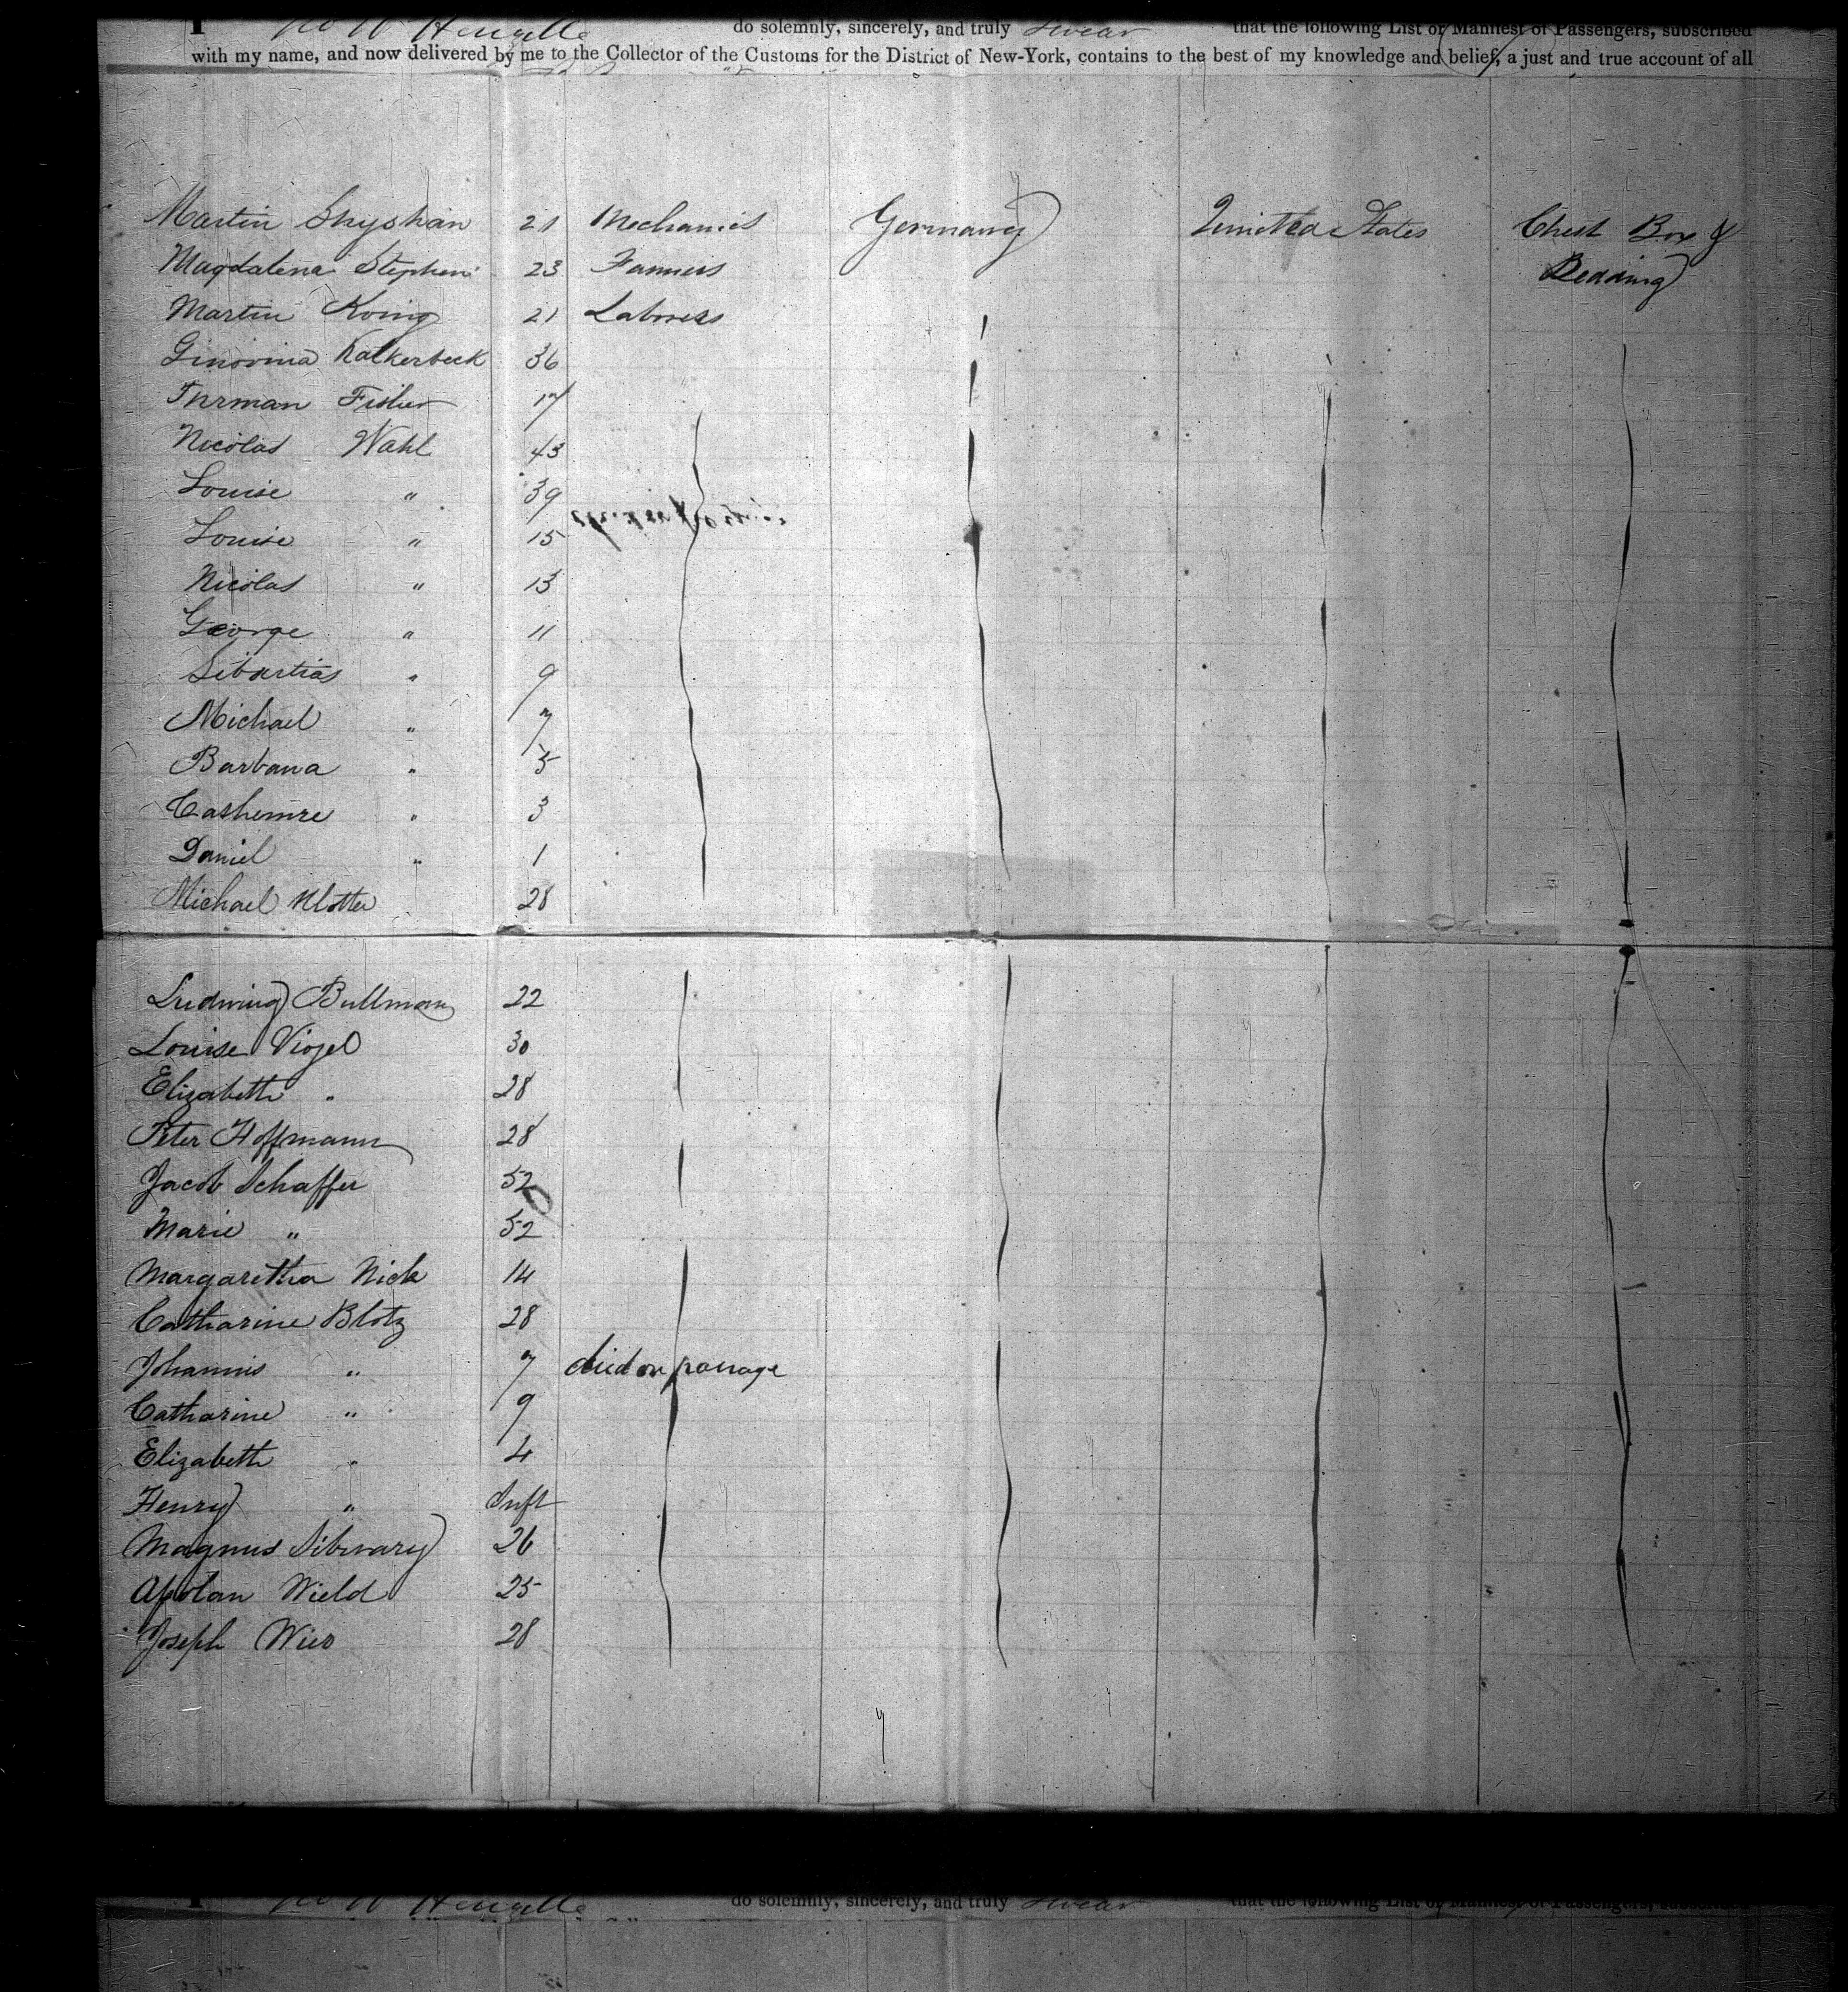 do solemnly, sincerely, and truly swear that the following List or Manifest of Passengers, subscribed
with my name, and now delivered by me to the Collector of the Customs for the District of New-York, contains to the best of my knowledge and belief, a just and true account of all
Martin 21 Mechanics Germany United States Chest Box &
Magdalena Stephen 23 Farmers Bedding
Martin Konig 21 Laborers
Ginovina Kalkerbeck 36
Thrman Fisher 17
Nicolas Wahl 43
Louise " 39
Louise " 15
Nicolas " 13
George " 11
Sibastias " 9
Michael " 7
Barbara " 5
Cashemire " 3
Daniel " 1
Michael Klotter 28
Ludwing Bullman 22
Louise Viogel 30
Elizabeth " 28
Peter Hoffmann 28
Jacob Schaffer 52
Marie " 52
Margaretha Nick 14
Catharine Blotz 28
Johannis " 7 died on passage
Catharine " 9
Elizabeth " 4
Henry " Inft
Magnus 26
Apolan Wield 25
Joseph Wier 28
do solemnly, sincerely, and truly swear that the following List or Manifest of Passengers, subscribed